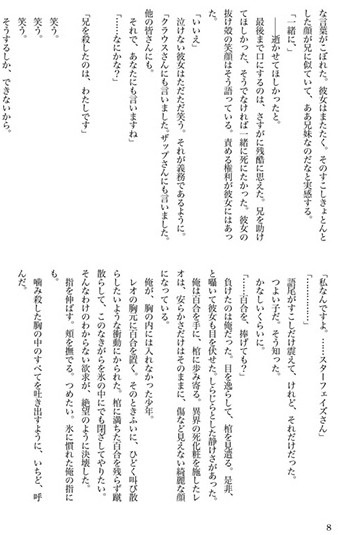 な言葉がこぼれた。彼女はまたたく、そのすこしきょとんと
した顔が兄に似ていて、ああ兄妹なのだなと実感する。
「一緒に、」
――逝かせてほしかったと。
最後まで口にするのは、さすがに残酷に思えた。兄を助け
てほしかった、そうでなければ一緒に死にたかった。彼女の
抜け殻の笑顔はそう語っている。責める権利が彼女にはあっ
た。
「いいえ」
泣けない彼女はただただ笑う。それが義務であるように。
「クラウスさんにも言いました。ザップさんにも言いました。
他の皆さんにも。
それで、あなたにも言いますね」
「……なにかな？」
「兄を殺したのは、わたしです」
笑う。
笑う。
笑う。
そうするしか、できないから。
「私なんですよ。……スターフェイズさん」
「…………」
語尾がすこしだけ震えて、けれど、それだけだった。
つよい子だ。そう知った。
かなしいくらいに。
「……百合を、捧げても？」
負けたのは俺だった。目を逸らして、棺を見遣る。是非、
と囁いて彼女も目を伏せた。しらじらとした静けさがあった。
俺は百合を手に、棺に歩み寄る。異界の死化粧を施したレ
オは、安らかさだけはそのままに、傷など見えない綺麗な顔
になっている。
俺が、胸の内には入れなかった少年。
レオの胸元に百合を置く。そのときふいに、ひどく叫び散
らしたいような衝動にかられた。棺に満ちた百合を残らず蹴
散らして、このなきがらを氷の中にでも閉ざしてやりたい。
そんなわけのわからない欲求が、絶望のように決壊した。
指を伸ばす。頬を撫でる。つめたい。氷に慣れた俺の指に
も。
噛み殺した胸の中のすべてを吐き出すように、いちど、呼
んだ。
8